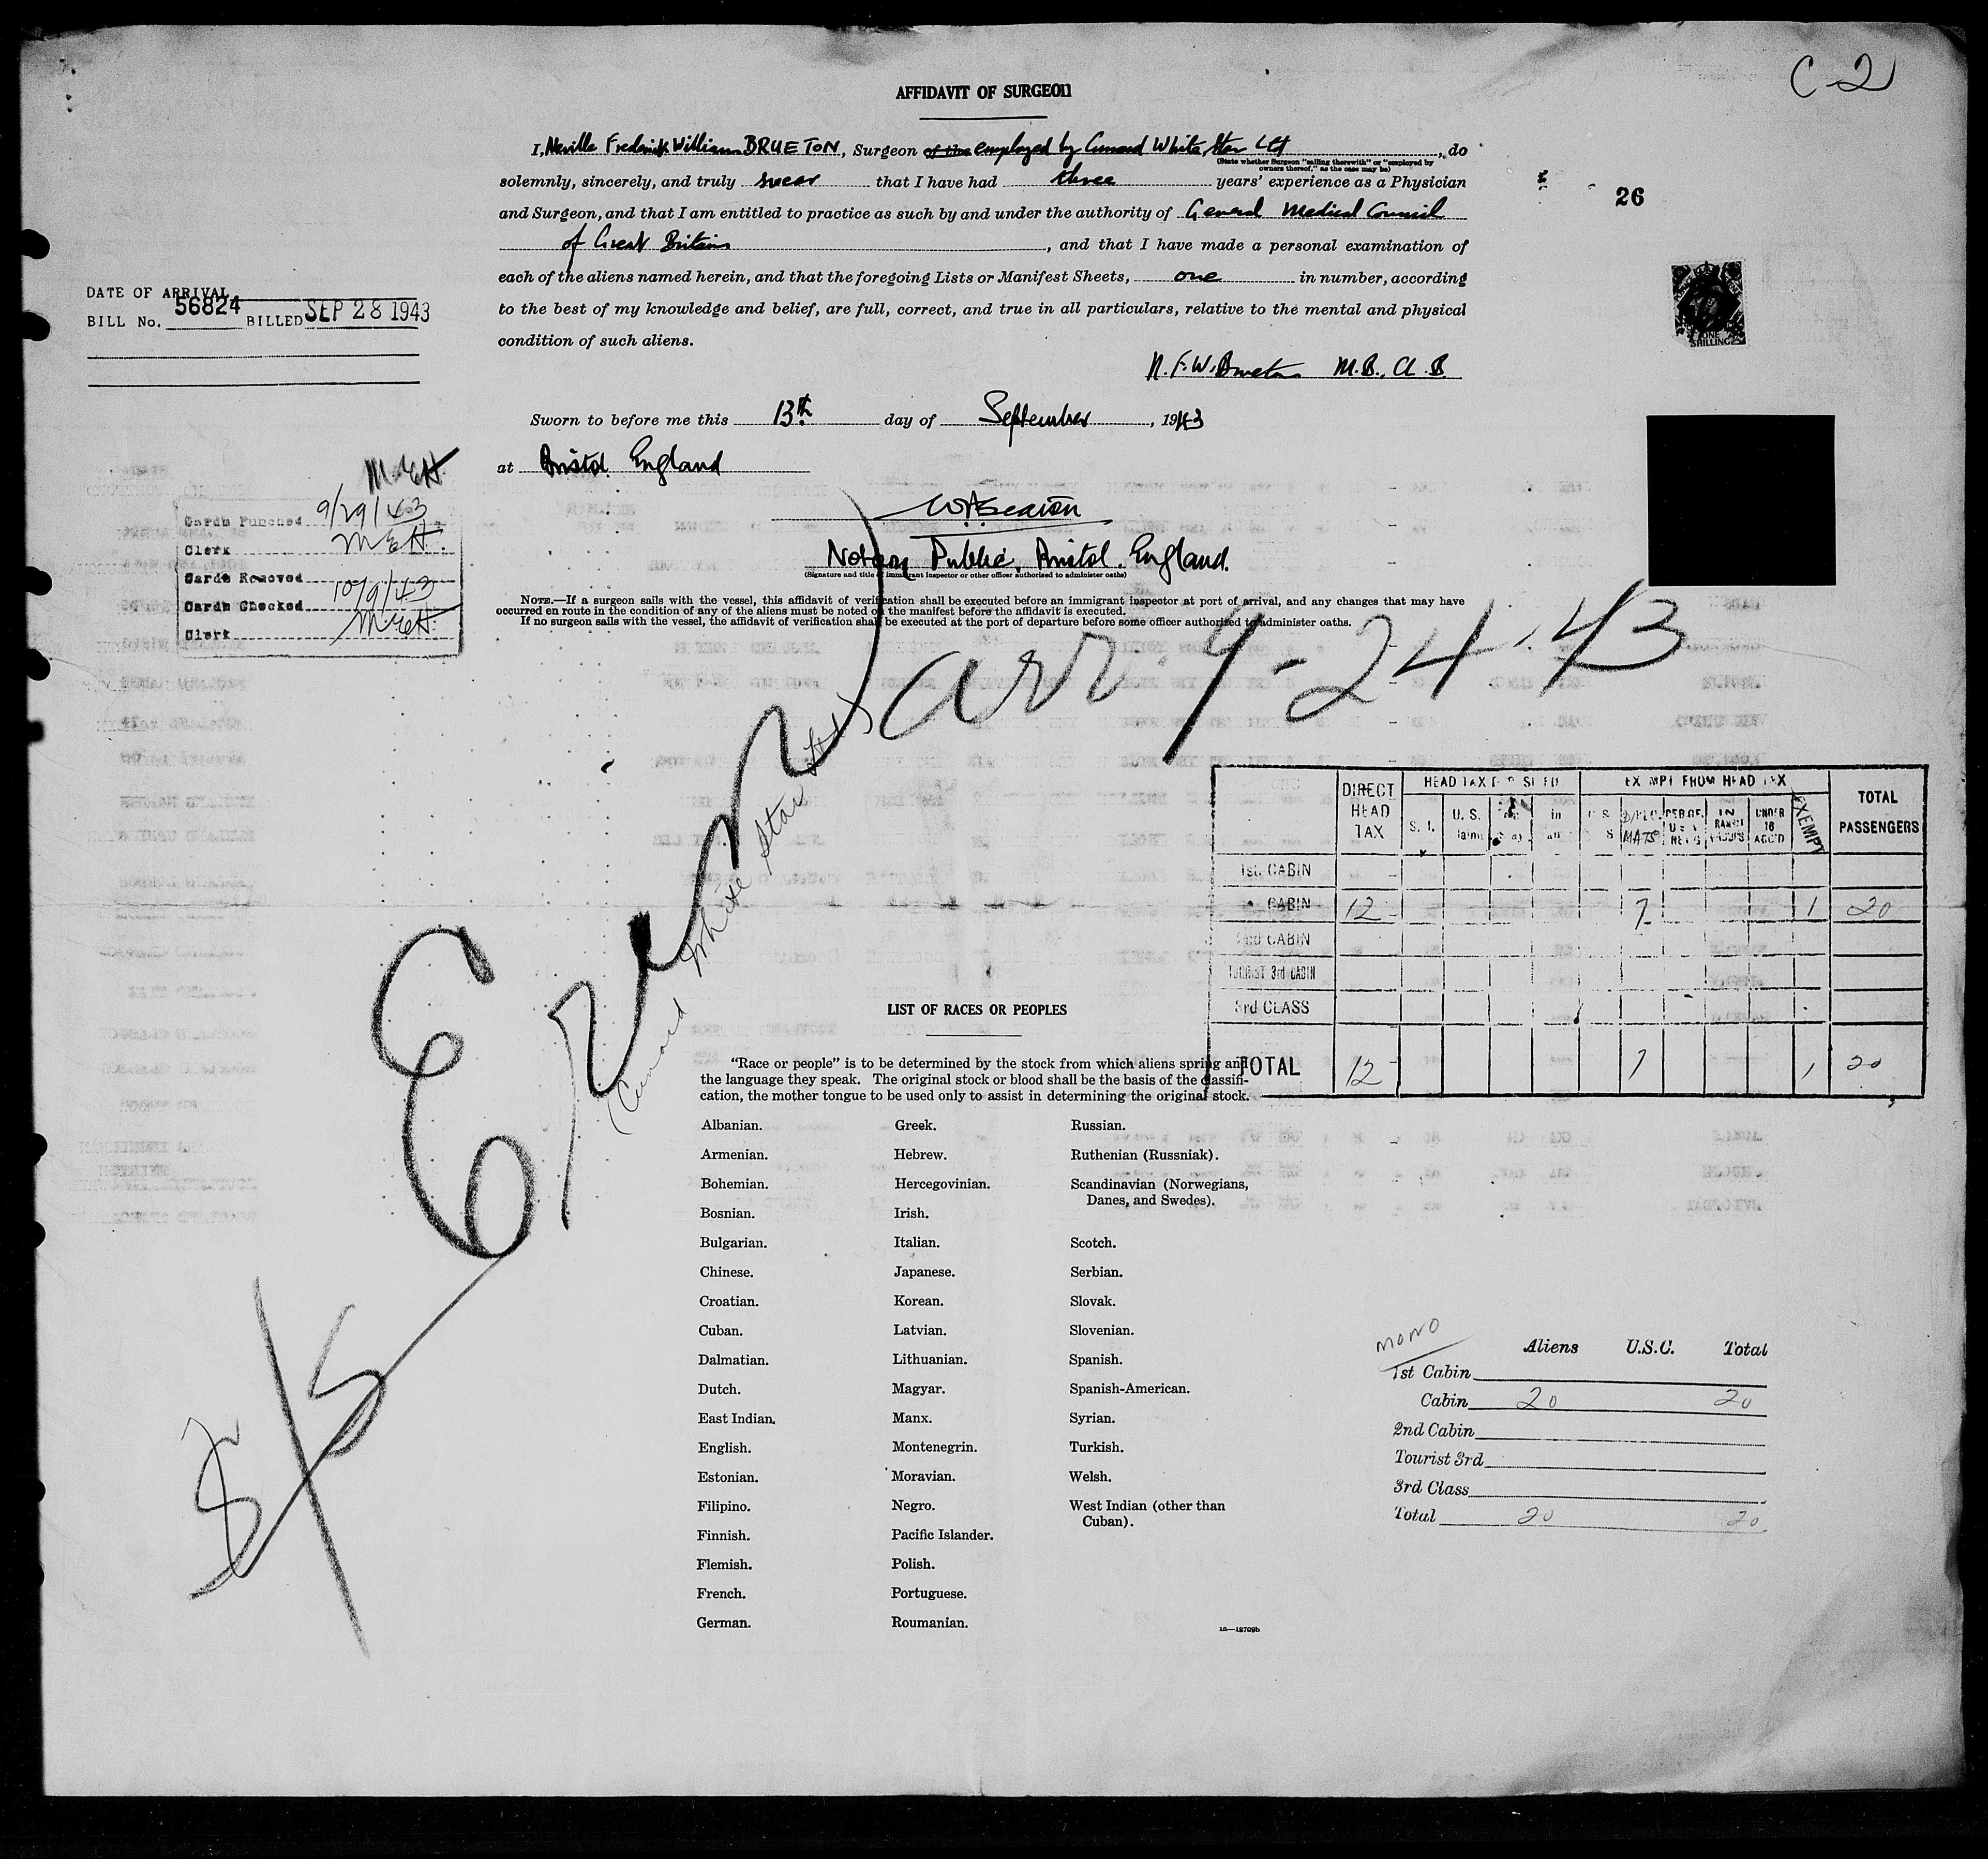 C-2
AFFIDAVIT OF SURGEON
I, Neville Frederick William BRUETON, Surgeon of the employed by Cunard White Star Ltd, do
(State whether Surgeon "sailing therewith" or "employed by
owners thereof," as the case may be)
solemnly, sincerely, and truly swear that I have had three years' experience as a Physician
26
and Surgeon, and that I am entitled to practice as such by and under the authority of General Medical Council
of Great Britain, and that I have made a personal examination of
each of the aliens named herein, and that the foregoing Lists or Manifest Sheets, one in number, according
to the best of my knowledge and belief, are full, correct, and true in all particulars, relative to the mental and physical
condition of such aliens.
DATE OF ARRIVAL
BILL No. 56824 BILLED SEP 28 1943
ONE
SHILLING
N.F.W. Brueton M.B., Ch.B.
Sworn to before me this 13th day of September, 1943
at Bristol England
Notary Public, Bristol, England.
(Signature and title of immigrant inspector or other officer authorized to administer oaths)
M.E.H.
Cards Punched 9/29/43
Clerk M.E.H.
Cards Removed
Cards Checked 10/9/43
Clerk M.E.H.
NOTE.—If a surgeon sails with the vessel, this affidavit of verification shall be executed before an immigrant inspector at port of arrival, and any changes that may have
occurred en route in the condition of any of the aliens must be noted on the manifest before the affidavit is executed.
If no surgeon sails with the vessel, the affidavit of verification shall be executed at the port of departure before some officer authorized to administer oaths.
arr. 9-24-43
S/S
(Cunard White Star Ltd)
DIRECT HEAD TAX
HEAD TAX
EXEMPT FROM HEAD TAX
TOTAL PASSENGERS
S. I.
U. S.
DIPLOMATS
IN
UNDER 16
EXEMPT
1st. CABIN
CABIN 12 7 1 20
2nd CABIN
TOURIST 3rd CABIN
3rd CLASS
TOTAL 12 7 1 20
LIST OF RACES OR PEOPLES
"Race or people" is to be determined by the stock from which aliens spring and
the language they speak. The original stock or blood shall be the basis of the classifi-
cation, the mother tongue to be used only to assist in determining the original stock.
Albanian. Greek. Russian.
Armenian. Hebrew. Ruthenian (Russniak).
Bohemian. Hercegovinian. Scandinavian (Norwegians,
Danes, and Swedes).
Bosnian. Irish.
Bulgarian. Italian. Scotch.
Chinese. Japanese. Serbian.
Croatian. Korean. Slovak.
Cuban. Latvian. Slovenian.
Dalmatian. Lithuanian. Spanish.
Dutch. Magyar. Spanish-American.
East Indian. Manx. Syrian.
English. Montenegrin. Turkish.
Estonian. Moravian. Welsh.
Filipino. Negro. West Indian (other than
Cuban).
Finnish. Pacific Islander.
Flemish. Polish.
French. Portuguese.
German. Roumanian.
16—18709b
MONO
Aliens U.S.C. Total
1st Cabin
Cabin 20 20
2nd Cabin
Tourist 3rd
3rd Class
Total 20 20